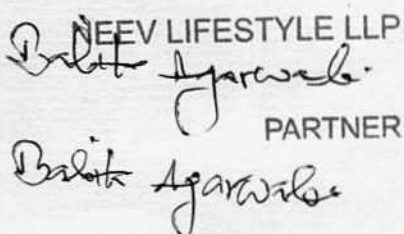 NEEV LIFESTYLE LLP
Babita Agarwala.
PARTNER
Babita Agarwala